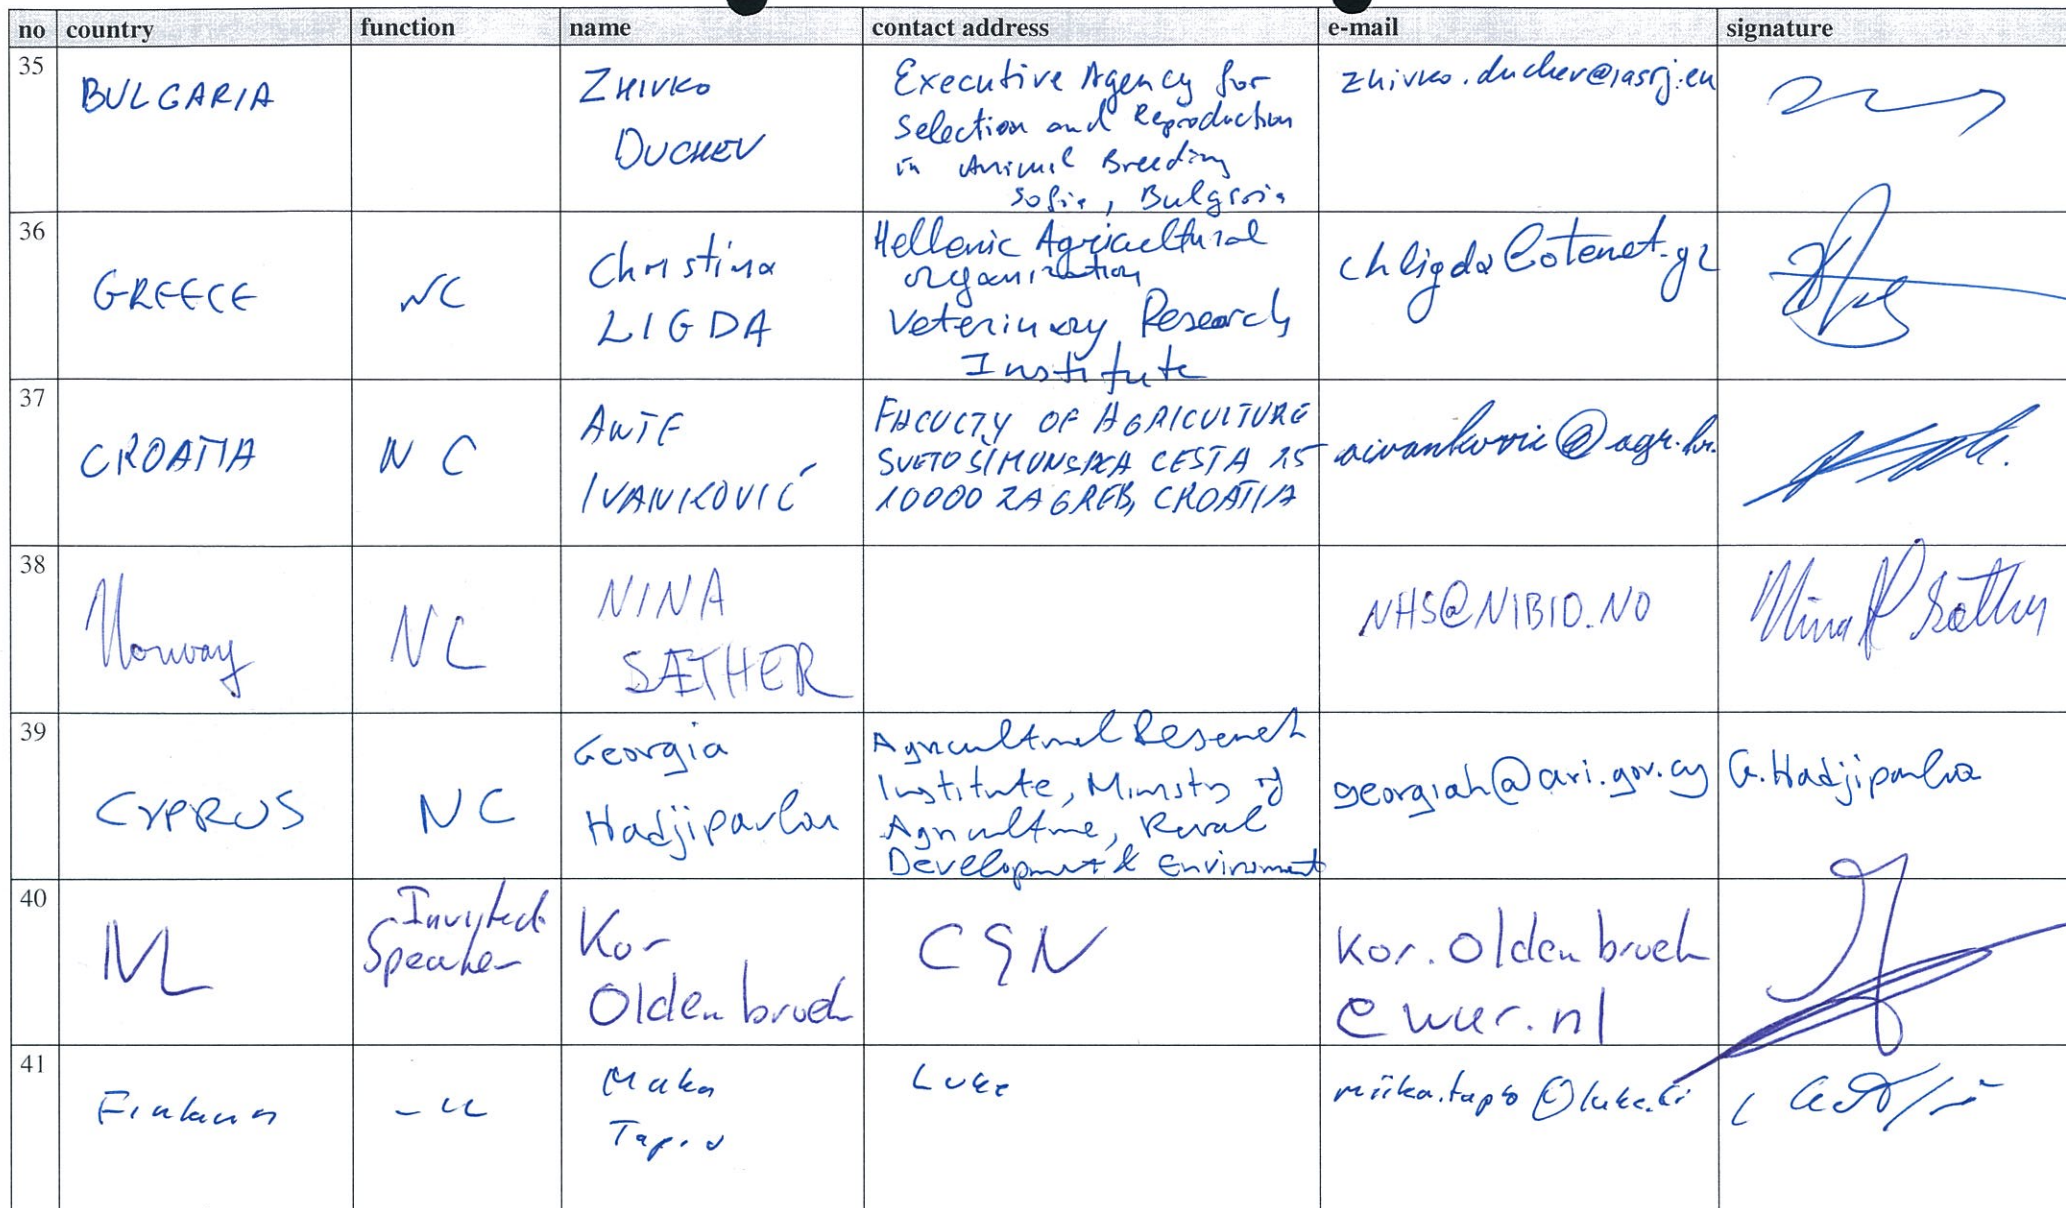 no country function name contact address e-mail signature
35
BULGARIA
ZHIVKO
DUCHEV
Executive Agency for
Selection and Reproduction
in Animal Breeding
Sofia, Bulgaria
zhivko.duchev@iasrj.eu
36
GREECE
NC
Christina
LIGDA
Hellenic Agricultural
organization
Veterinary Research
Institute
chligda@otenet.gr
37
CROATIA
NC
ANTE
IVANKOVIĆ
FACULTY OF AGRICULTURE
SVETOŠIMUNSKA CESTA 25
10000 ZAGREB, CROATIA
aivankovic@agr.hr.
38
Norway
NC
NINA
SÆTHER
NHS@NIBIO.NO
Nina H Sæther
39
CYPRUS
NC
Georgia
Hadjipavlou
Agricultural Research
Institute, Ministry of
Agriculture, Rural
Development & Enviroment
georgiah@ari.gov.cy
G. Hadjipavlou
40
NL
Invited
Speaker
Kor
Oldenbroek
CGN
kor.oldenbroek
@wur.nl
41
Finland
Miika
Tapio
Luke
miika.tapio@luke.fi